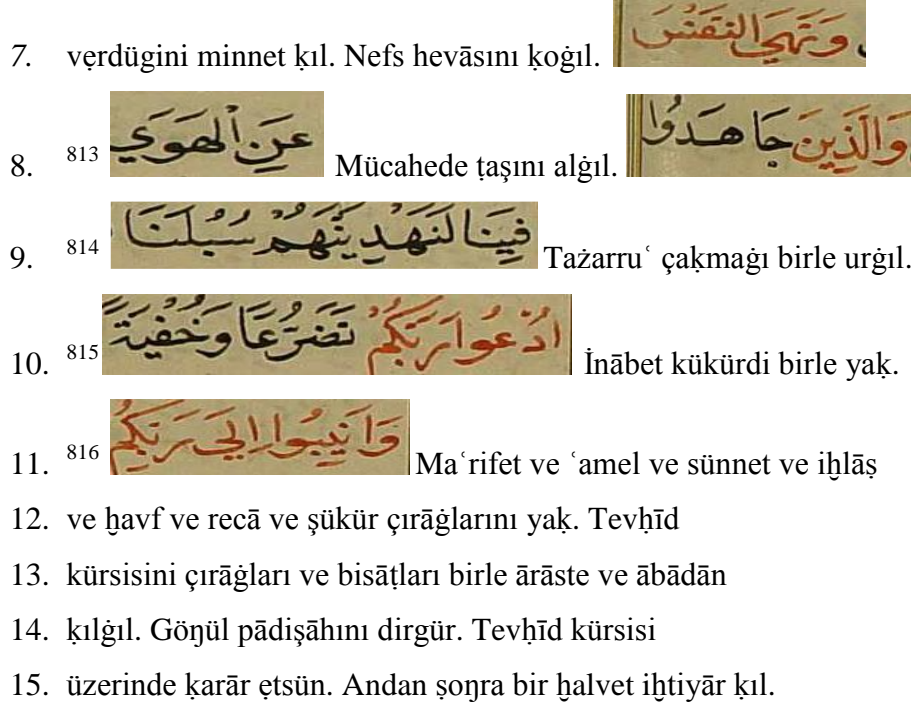 7. vẹrdügini minnet ḳıl. Nefs hevāsını ḳoġıl. وَنَهَي النَّفْسَ
8. 813 عَنِ الْهَوَي Mücahede ṭaşını alġıl. وَالَّذِينَ جَاهَدُوا
9. 814 فِينَا لَنَهْدِيَنَّهُمْ سُبُلَنَا Tażarruʿ çaḳmaġı birle urġıl.
10. 815 اُدْعُوا رَبَّكُمْ تَضَرُّعًا وَخُفْيَةً İnābet kükürdi birle yaḳ.
11. 816 وَاَنِيبُوا اِلَي رَبِّكُمْ Maʿrifet ve ʿamel ve sünnet ve iḫlāṣ
12. ve ḫavf ve recā ve şükür çırāġlarını yaḳ. Tevḥīd
13. kürsisini çırāġları ve bisāṭları birle ārāste ve ābādān
14. ḳılġıl. Göŋül pādişāhını dirgür. Tevḥīd kürsisi
15. üzerinde ḳarār ẹtsün. Andan ṣoŋra bir ḫalvet iḫtiyār ḳıl.